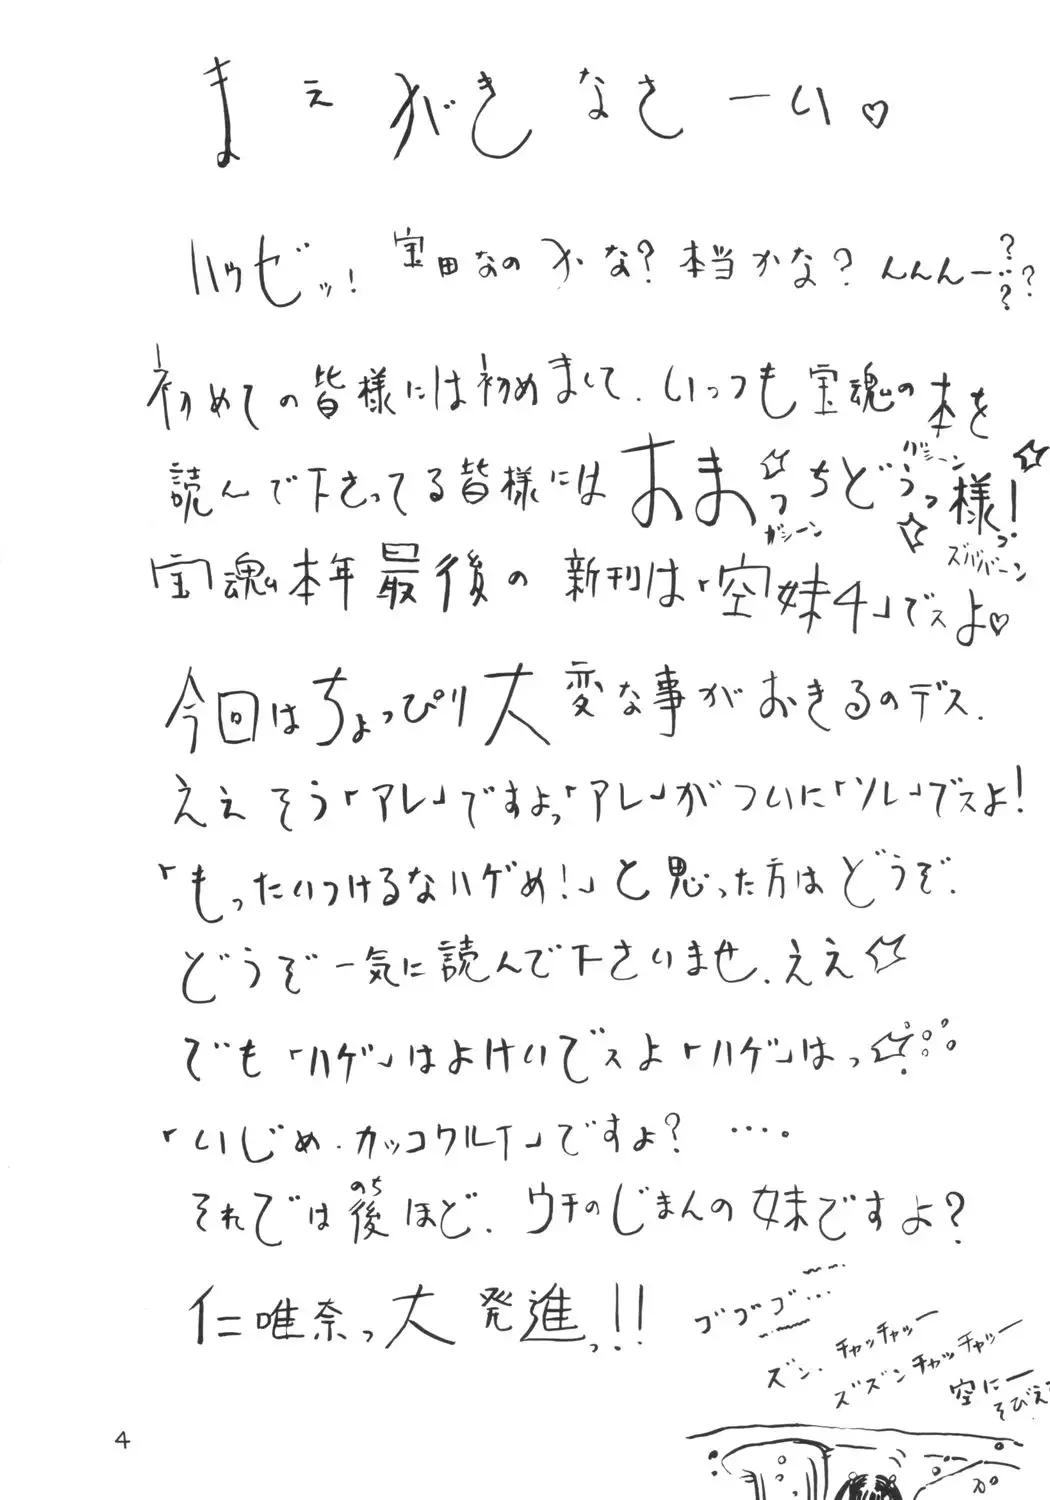 まえがきなさーい♡
ハゥゼッ! 宝田なのかな?本当かな?んんんー???
初めての皆様には初めまして.いっつも宝魂の本を
読んで下さってる皆様にはおまっちどうっ様っ!
ガシーン
ガシーン
ズババーン
宝魂本年最後の新刊は「空妹4」でスよ♡
今回はちょっぴり大変な事がおきるのデス.
ええそう「アレ」ですよっ「アレ」がついに「ソレ」でスよ!
「もったいつけるなハゲめ!」と思った方はどうぞ.
どうぞ一気に読んで下さいませ.ええ☆
でも「ハゲ」はよけいでスよ「ハゲ」はっ☆
「いじめ・カッコワルイ」ですよ? ….
それでは後ほど.ウチのじまんの妹ですよ?
のち
仁唯奈っ大発進っ!!
ゴゴゴ…
ズン.チャッチャッー
ズズンチャッチャー
空にー
そびえ
4